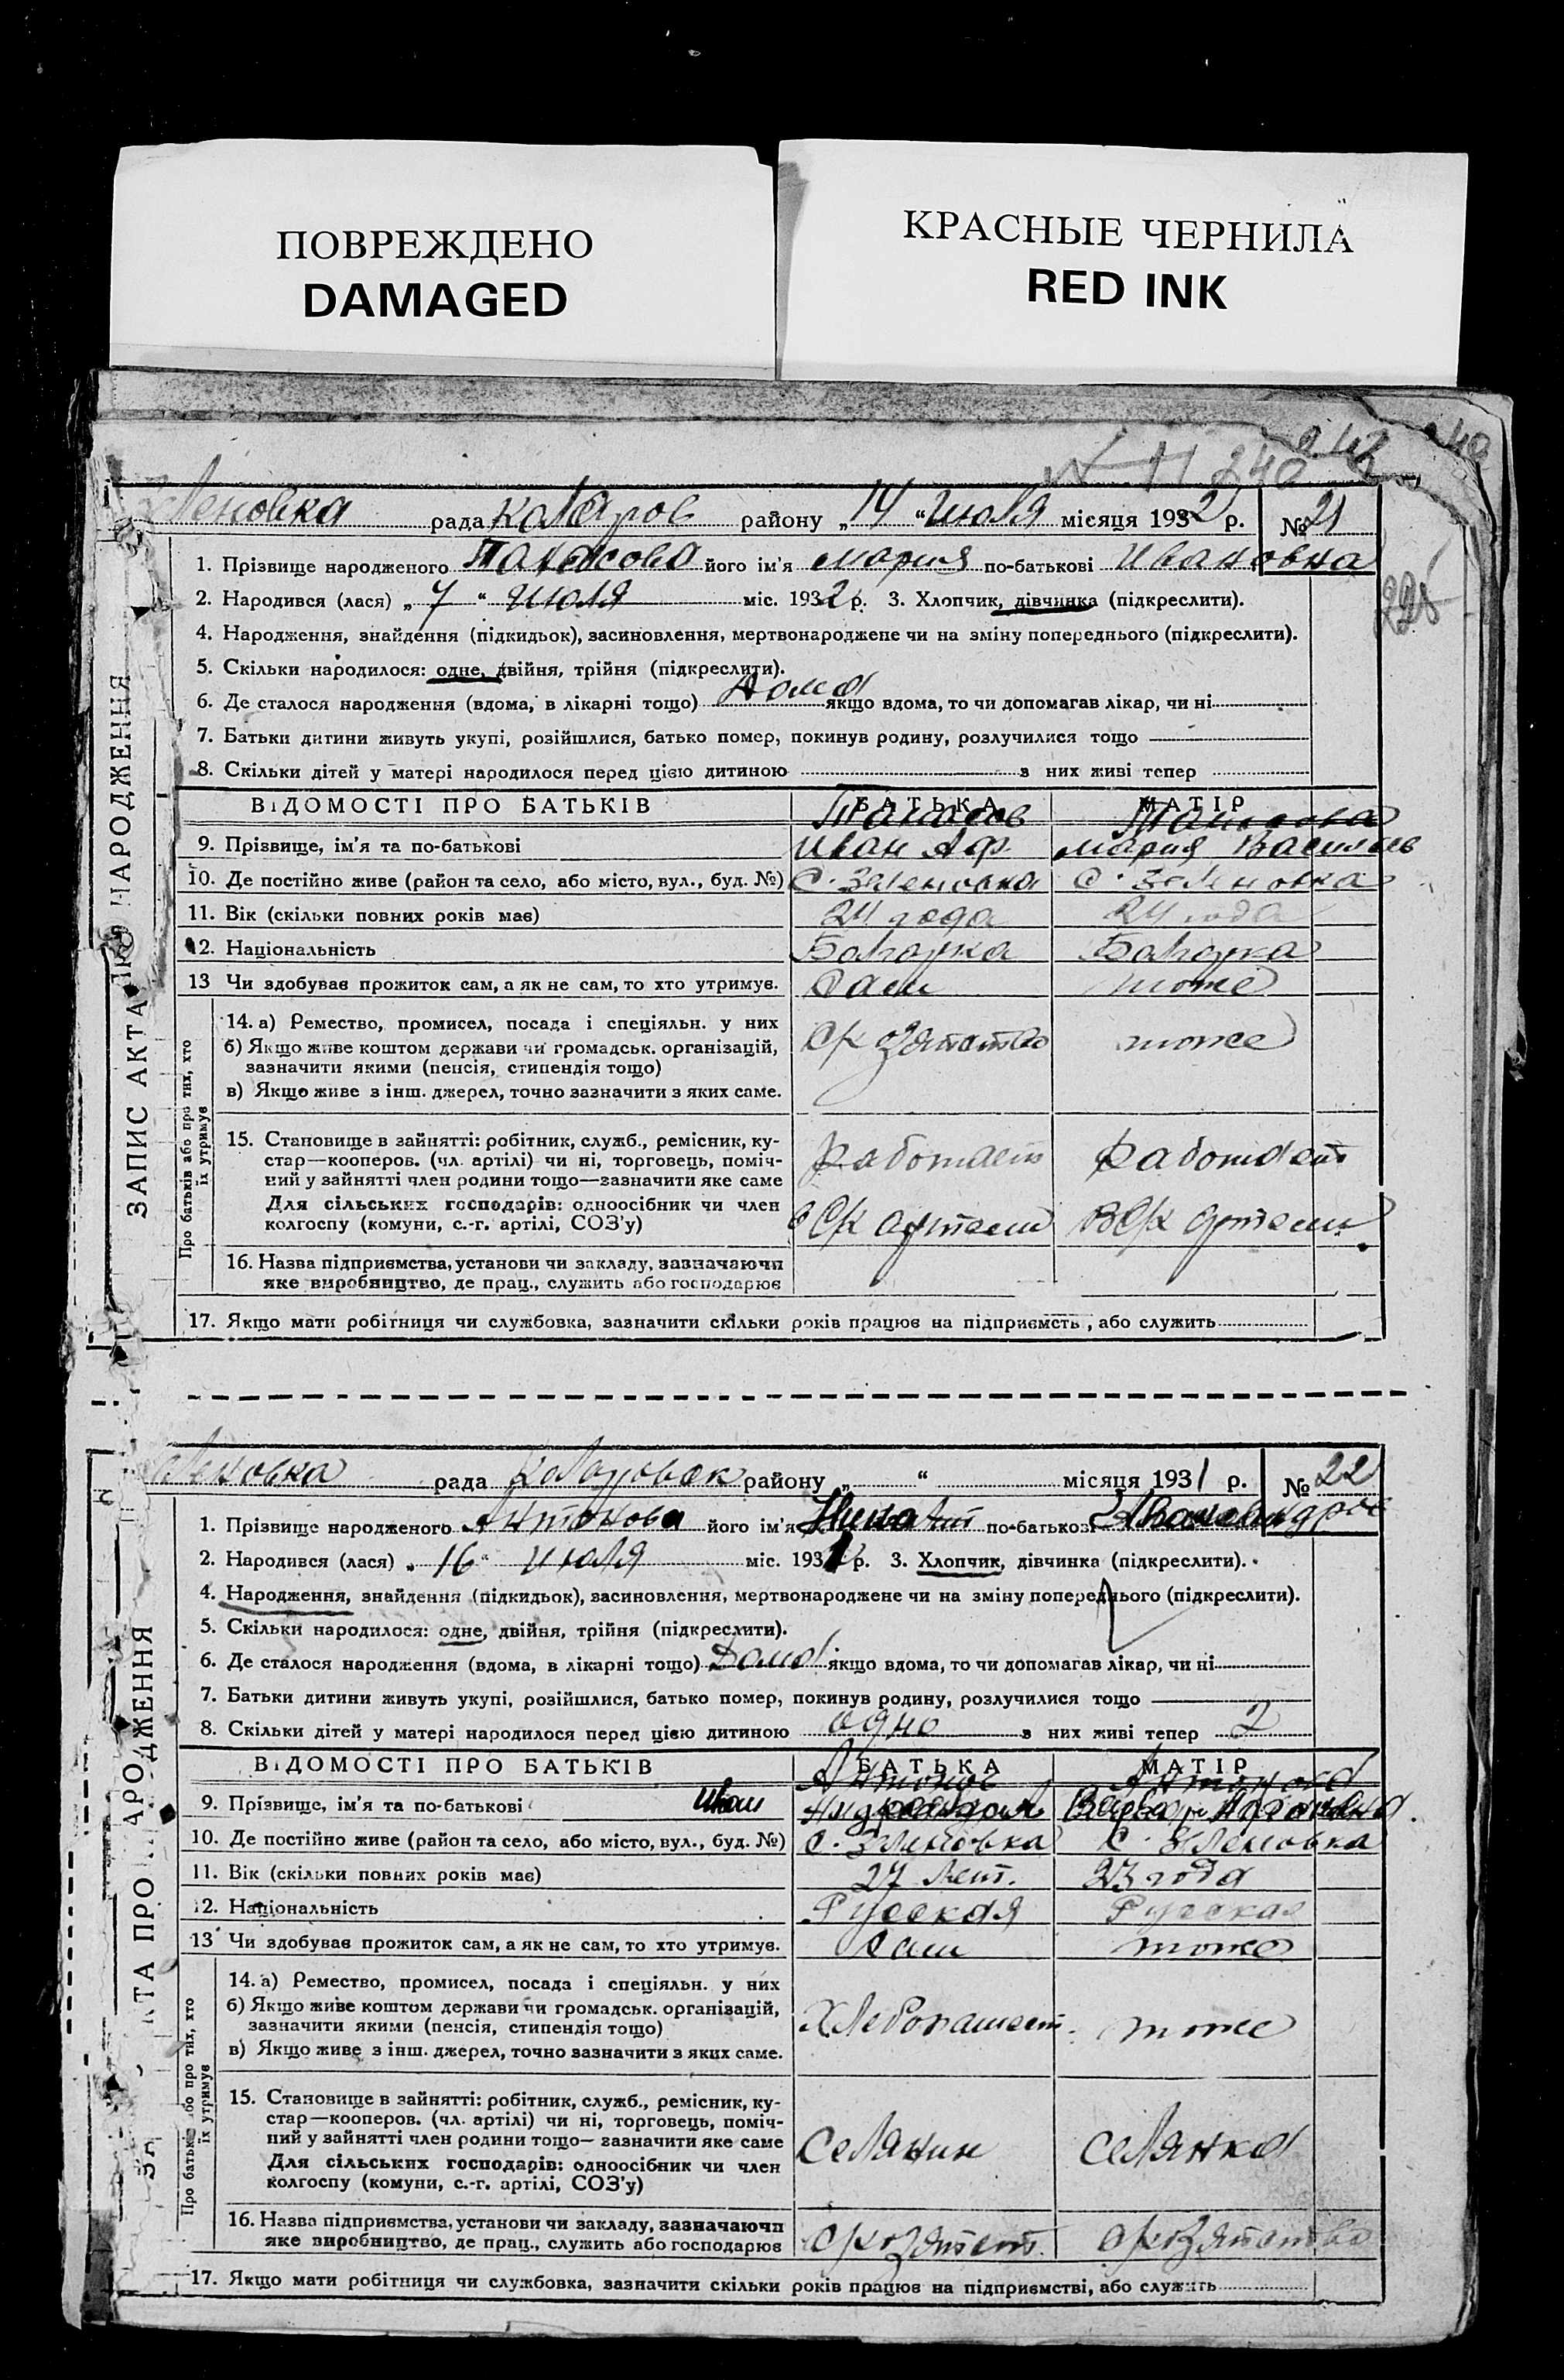 ПОВРЕЖДЕНО
DAMAGED
КРАСНЫЕ ЧЕРНИЛА
RED INK
240
леновка рада Коларов району „14“ июля місяця 1932 р. № 21
1. Прізвище народженого Танасова його ім'я Мария по-батькові Ивановна
2. Народився (лася) „7“ июля міс. 1932 р. 3. Хлопчик, дівчинка (підкреслити).
225
4. Народження, знайдення (підкидьок), засиновлення, мертвонароджене чи на зміну попереднього (підкреслити).
5. Скільки народилося: одне, двійня, трійня (підкреслити).
6. Де сталося народження (вдома, в лікарні тощо) Дома якщо вдома, то чи допомагав лікар, чи ні
7. Батьки дитини живуть укупі, розійшлися, батько помер, покинув родину, розлучилися тощо
8. Скільки дітей у матері народилося перед цією дитиною з них живі тепер
ВІДОМОСТІ ПРО БАТЬКІВ БАТЬКА МАТІР
Танасов Танасова
9. Прізвище, ім'я та по-батькові Иван Аф. Мария Васильев
10. Де постійно живе (район та село, або місто, вул., буд. №) С. Зеленовка С. Зеленовка
11. Вік (скільки повних років має) 24 года 24 года
12. Національність Болгарка Болгарка
13 Чи здобуває прожиток сам, а як не сам, то хто утримує. Сам тоже
14. а) Ремество, промисел, посада і спеціяльн. у них
б) Якщо живе коштом держави чи громадськ. організацій, тоже
зазначити якими (пенсія, стипендія тощо)
в) Якщо живе з інш. джерел, точно зазначити з яких саме.
15. Становище в зайнятті: робітник, служб., ремісник, ку-
стар—кооперов. (чл. артілі) чи ні, торговець, поміч- Работает Работает
ний у зайнятті член родини тощо—зазначити яке саме
Для сільських господарів: одноосібник чи член
колгоспу (комуни, с.-г. артілі, СОЗ'у) в С/х артели В С/х артели
16. Назва підприємства, установи чи закладу, зазначаючи
яке виробництво, де прац., служить або господарює
17. Якщо мати робітниця чи службовка, зазначити скільки років працює на підприємсть, або служить
ЗАПИС АКТА ПРО НАРОДЖЕННЯ
Про батьків або про тих, хто
їх утримує
леновка рада району „ “ місяця 1931 р. № 22
1. Прізвище народженого Антонова його ім'я по-батькові
2. Народився (лася) „16“ июля міс. 1931 р. 3. Хлопчик, дівчинка (підкреслити).
4. Народження, знайдення (підкидьок), засиновлення, мертвонароджене чи на зміну попереднього (підкреслити).
5. Скільки народилося: одне, двійня, трійня (підкреслити).
6. Де сталося народження (вдома, в лікарні тощо) Дома якщо вдома, то чи допомагав лікар, чи ні
7. Батьки дитини живуть укупі, розійшлися, батько помер, покинув родину, розлучилися тощо
8. Скільки дітей у матері народилося перед цією дитиною одно з них живі тепер 2
ВІДОМОСТІ ПРО БАТЬКІВ БАТЬКА МАТІР
Антонов Антонова
9. Прізвище, ім'я та по-батькові
10. Де постійно живе (район та село, або місто, вул., буд. №) С. Зеленовка С. Зеленовка
11. Вік (скільки повних років має) 27 лет. 23 года
12. Національність Русская Русская
13 Чи здобуває прожиток сам, а як не сам, то хто утримує. Сам тоже
14. а) Ремество, промисел, посада і спеціяльн. у них
б) Якщо живе коштом держави чи громадськ. організацій,
зазначити якими (пенсія, стипендія тощо) тоже
в) Якщо живе з інш. джерел, точно зазначити з яких саме.
15. Становище в зайнятті: робітник, служб., ремісник, ку-
стар—кооперов. (чл. артілі) чи ні, торговець, поміч-
ний у зайнятті член родини тощо—зазначити яке саме Селянин Селянка
Для сільських господарів: одноосібник чи член
колгоспу (комуни, с.-г. артілі, СОЗ'у)
16. Назва підприємства, установи чи закладу, зазначаючи
яке виробництво, де прац., служить або господарює
17. Якщо мати робітниця чи службовка, зазначити скільки років працює на підприємстві, або служить